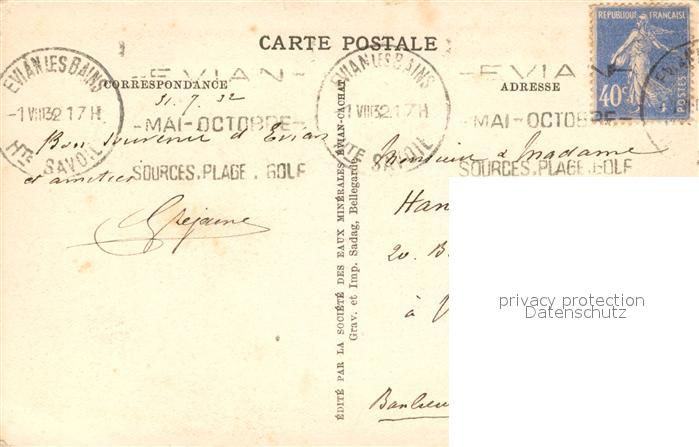 CARTE POSTALE
REPUBLIQUE FRANÇAISE
40 c
POSTES
EVIAN LES BAINS
-1 VIII 32 17 H
HTE SAVOIE
-EVIAN-
-MAI-OCTOBRE-
SOURCES. PLAGE. GOLF
EVIAN LES BAINS
1 VIII 32 17 H
HTE SAVOIE
-EVIAN
-MAI-OCTOBRE-
SOURCES. PLAGE. GOLF
CORRESPONDANCE
31.7.32
Bon souvenir d'Evian
et amitiés
ÉDITÉ PAR LA SOCIÉTÉ DES EAUX MINÉRALES ÉVIAN-CACHAT
Grav. et Imp. Sadag, Bellegarde
ADRESSE
Monsieur & Madame
Han
20. B
à V
Banlieu
privacy protection
Datenschutz